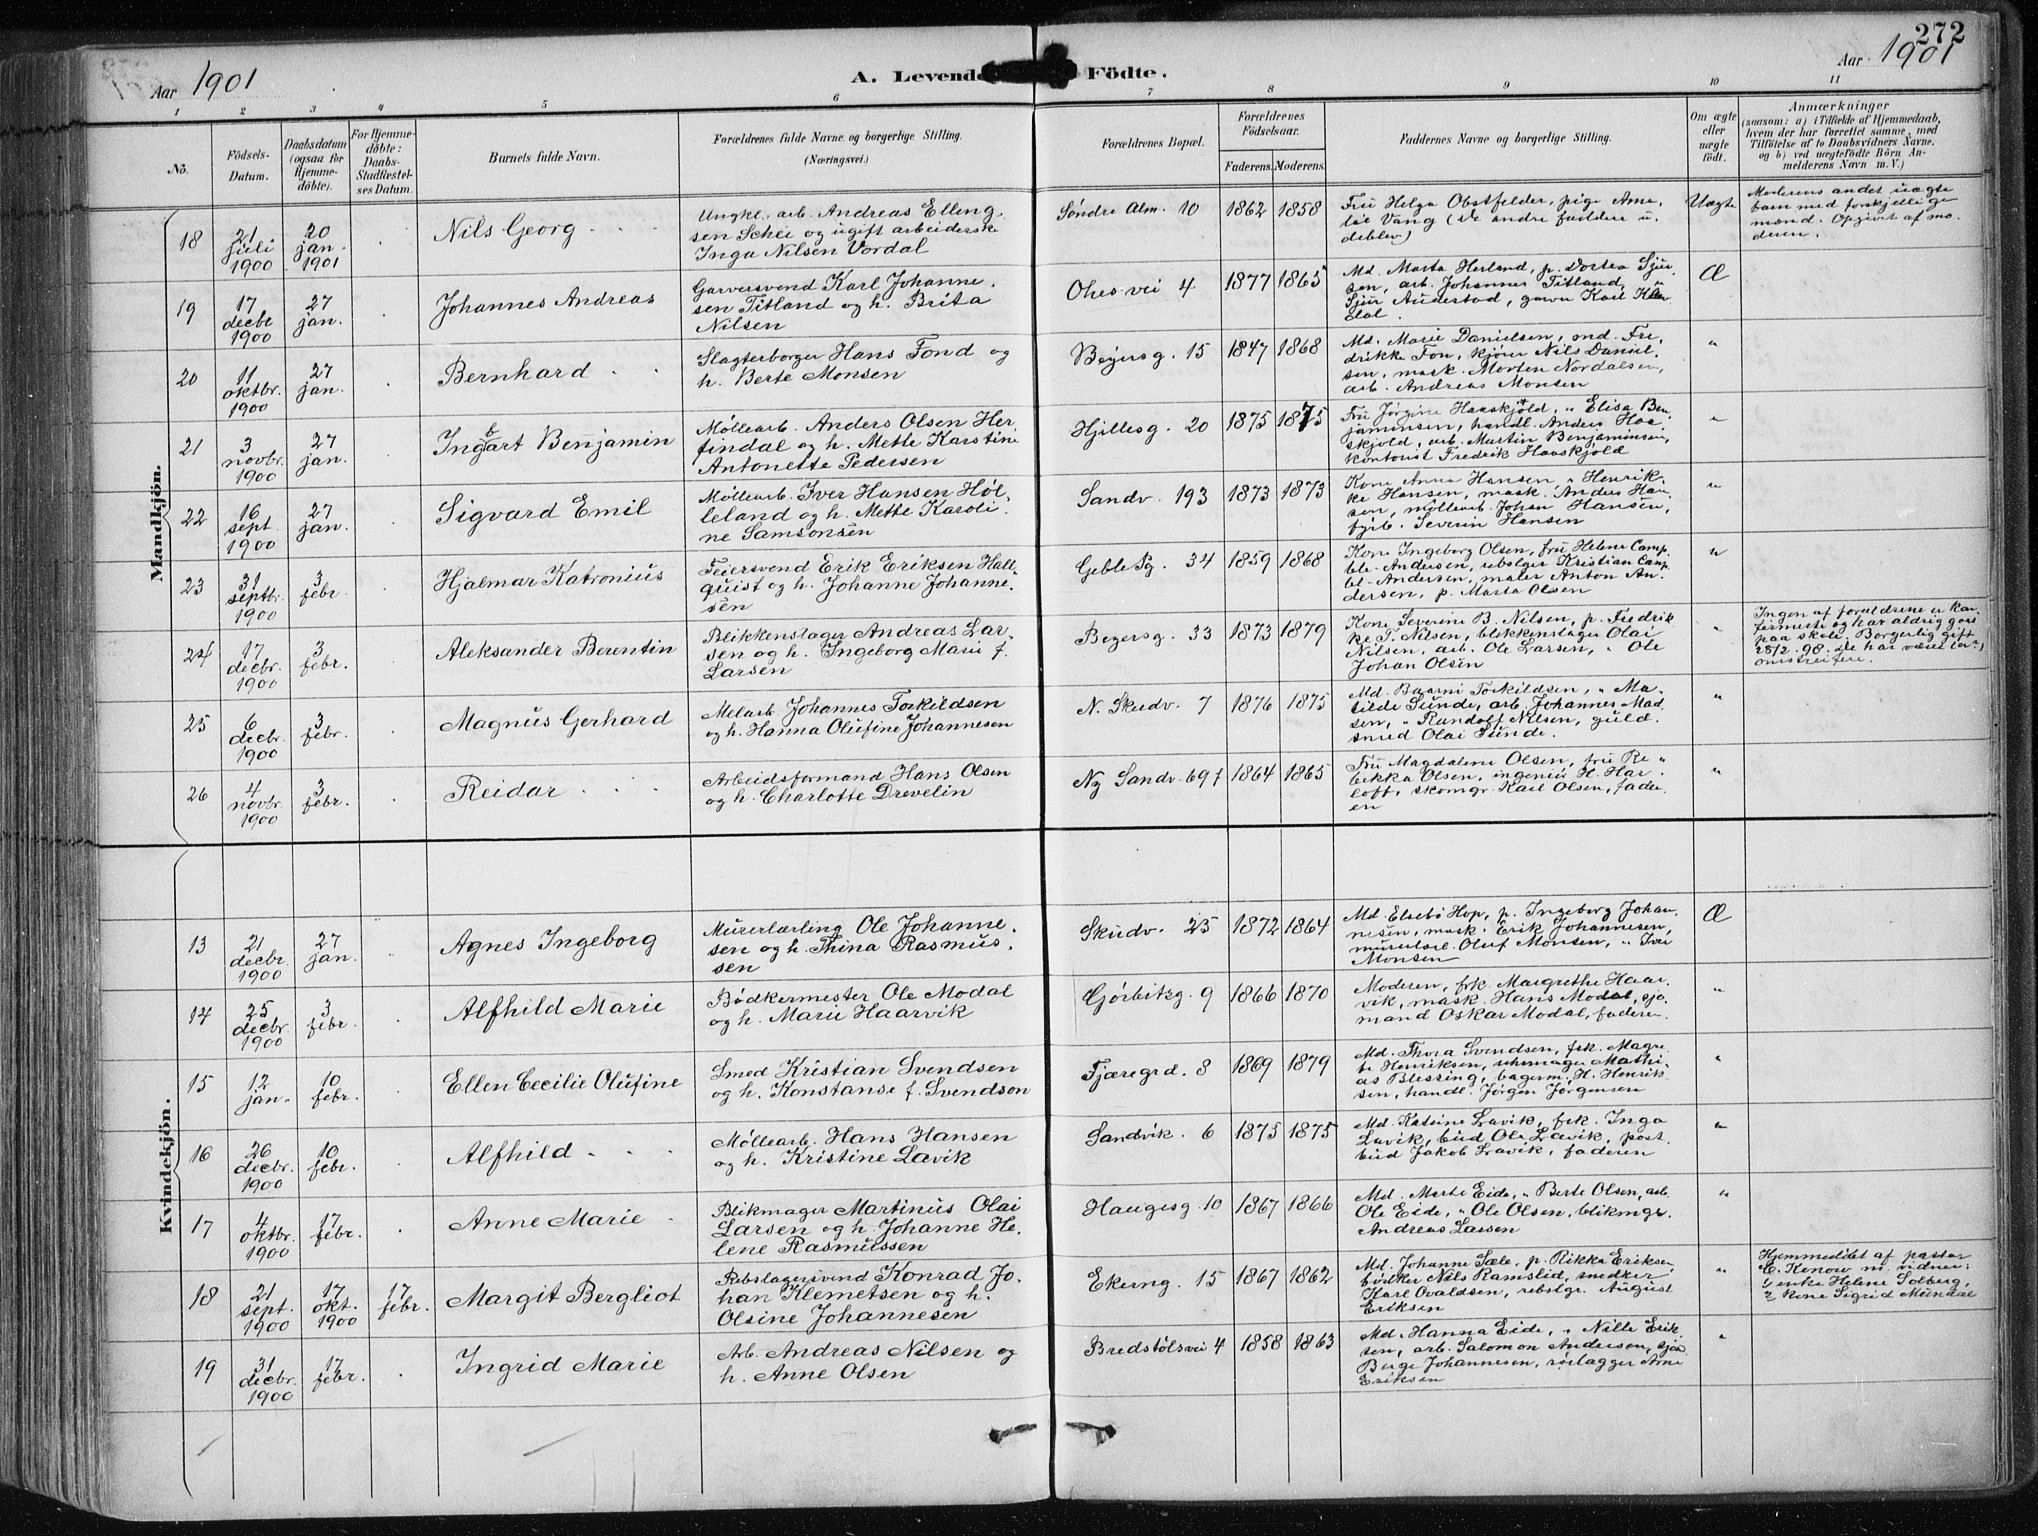 272
Aar 1901
A. Levende Födte.
Aar 1901
1 2 3 4 5 6 7 8 9 10 11
No.
Födsels-Datum.
Daabsdatum (ogsaa for Hjemmedöbte).
For Hjemmedöbte: Daabs-Stadfæstelses Datum.
Barnets fulde Navn.
Forældrenes fulde Navne og borgerlige Stilling.
(Næringsvei.)
Forældrenes Bopæl.
Forældrenes Födselsaar.
Faderens. Moderens.
Faddernes Navne og borgerlige Stilling.
Om ægte eller uægte födt.
Anmærkninger
(saasom: a) i Tilfælde af Hjemmedaab, hvem der har forrettet samme, med Tilföielse af to Daabsvidners Navne, og b) ved uægtefödte Börn Anmelderens Navn m. V.)
Mandkjön.
18 21 juli 1900 20 jan. 1901 Nils Georg
Ungk. arb. Andreas Elling
sen Schei og ugift arbeiderske
Inga Nilsen Vordal
Søndre Alm. 10 1862 1858
Fru Helga Obstfelder, pige Ama
lie Vang (De andre faddere u
deblev)
Uægte
Moderens andet uægte
barn med forskjellige
mænd. Opgivet af mo
deren.
19 17 decbr 1900 27 jan. Johannes Andreas
Garversvend Karl Johanne
sen Titland og h. Brita
Nilsen
Ohes vei 4 1877 1865
Md. Marta Herland, p. Dortea Sjur
sen, arb. Johannes Titland, "
Sjur Audestad, garver Karl
dal.
Æ
20 11 oktbr. 1900 27 jan. Bernhard
Slagterborger Hans Fond og
h. Berte Monsen
Beyersg. 15 1847 1868
Md. Marie Danielsen, md. Fre
drikke Fon, kjører Nils Daniel
sen, mask. Morten Nordalsen,
arb. Andreas Monsen
"
21 3 novbr. 1900 27 jan. Ingbart Benjamin
Møllearb. Anders Olsen Her
findal og h. Mette Karstine
Antonette Pedersen
Hjellesg. 20 1875 1875
Fru Jørgine Haaskjold, " Elisa Ben
jaminsen, handl. Anders Haa
skjold, arb. Martin Benjaminsen,
kontorist Fredrik Haaskjold
"
22 16 sept. 1900 27 jan. Sigvard Emil
Møllearb. Iver Hansen Høl
leland og h. Mette Karoli
ne Samsonsen
Sandv. 193 1873 1873
Kone Anna Hansen, " Henrik
ke Hansen, mask. Anders Han
sen, møllearb. Johan Hansen,
fyrb. Severin Hansen
"
23 31 septbr. 1900 3 febr. Hjalmar Katronius
Feiersvend Erik Eriksen Hall
quist og h. Johanne Johanne
sen
Geble Pg. 34 1859 1868
Kone Ingeborg Olsen, fru Helene Camp
ble-Andersen, rebslger Kristian Camp
bl-Andersen, maler Anton An
dersen, p. Marta Olsen
"
24 17 decbr. 1900 3 febr. Aleksander Berentin
Blikkenslager Andreas Lar
sen og h. Ingeborg Marie f.
Larsen
Beyersg. 33 1873 1879
Kone Severine B. Nilsen, p. Fredrik
ke T. Nilsen, blekkenslager Olai
Nilsen, arb. Ole Larsen, " Ole
Johan Olsen
"
Ingen af forældrene er kon
firmerte og har aldrig gaat
paa skole. Borgerlig gift
28/2. 98. De har været
omstreifere.
25 6 decbr. 1900 3 febr. Magnus Gerhard
Mølarb. Johannes Torkildsen
og h. Hanna Olufine Johannesen
N. Skudv. 7 1876 1875
Md. Baarni Torkildsen, " Ma
tilde Sunde, arb. Johannes Mad
sen, " Randolf Nilsen, guld
smed Olai Sunde.
"
26 4 novbr. 1900 3 febr. Reidar
Arbeidsformand Hans Olsen
og h. Charlotte Drevelin
Ny Sandv. 69 f 1864 1865
Fru Magdalene Olsen, fru Re
bekka Olsen, ingeniør H. Har
loff, skomgr. Karl Olsen, fader
en
"
Kvindekjön.
13 21 decbr. 1900 27 jan. Agnes Ingeborg
Murerlærling Ole Johanne
sen og h. Thina Rasmus
sen
Skudv. 25 1872 1864
Md. Elsebø Hop, p. Ingeborg Johan
nesen, mask. Erik Johannesen,
Oluf Monsen, " Iver
Monsen
Æ
14 25 decbr. 1900 3 febr. Alfhild Marie
Bødkermester Ole Modal
og h. Marie Haarvik
Gjørbikg. 9 1866 1870
Moderen, frk. Margrethe Haar
vik, mask. Hans Modal, sjø
mand Oskar Modal, faderen
"
15 12 jan. 10 febr. Ellen Cecilie Olufine
Smed Kristian Svendsen
og h. Konstanse f. Svendson
Fjæregrd. 3 1869 1879
Md. Thora Svendsen, frk. Magre
te Henriksen, uhrmager Mathi
as Blessing, bagerm. H. Henrik
sen, handl. Jørgen Jørgensen
"
16 26 decbr. 1900 10 febr. Alfhild
Møllearb. Hans Hansen
og h. Kristine Lavik
Sandvik. 6 1875 1875
Md. Katrine Lavik, frk. Inga
Lavik, bud Ole Lavik, post
bud Jakob Lavik, faderen
"
17 4 oktbr. 1900 17 febr. Anne Marie
Blikmager Martinus Olai
Larsen og h. Johanne He
lene Rasmussen
Haugesg. 10 1867 1866
Md. Marte Eide, " Berte Olsen, arb.
Ole Eide, " Ole Olsen, blikmgr.
Andreas Larsen
"
18 21 sept. 1900 17 okt. 1900 17 febr. Margit Bergliot
Rebslagersvend Konrad Jo
han Klemetsen og h.
Olsine Johannesen
Ekerng. 15 1867 1862
Md. Johanne Sæle, p. Rikka Eriksen,
bødker Nils Ramslid, snedker
Karl Ovaldsen, rebslgr. August
Eriksen
"
Hjemmedøbt af pastor
E. Konow m. vidner:
1) enke Helene Solberg,
2) Kone Sigrid Mundal
19 31 decbr. 1900 17 febr. Ingrid Marie
Arb. Andreas Nilsen og
h. Anne Olsen
Bredstølsvei 4 1858 1863
Md. Hanna Eide, " Nille Erik
sen, arb. Salomon Andersen, sjøm
Berge Johannesen, rørlægger Arne
Eriksen
"